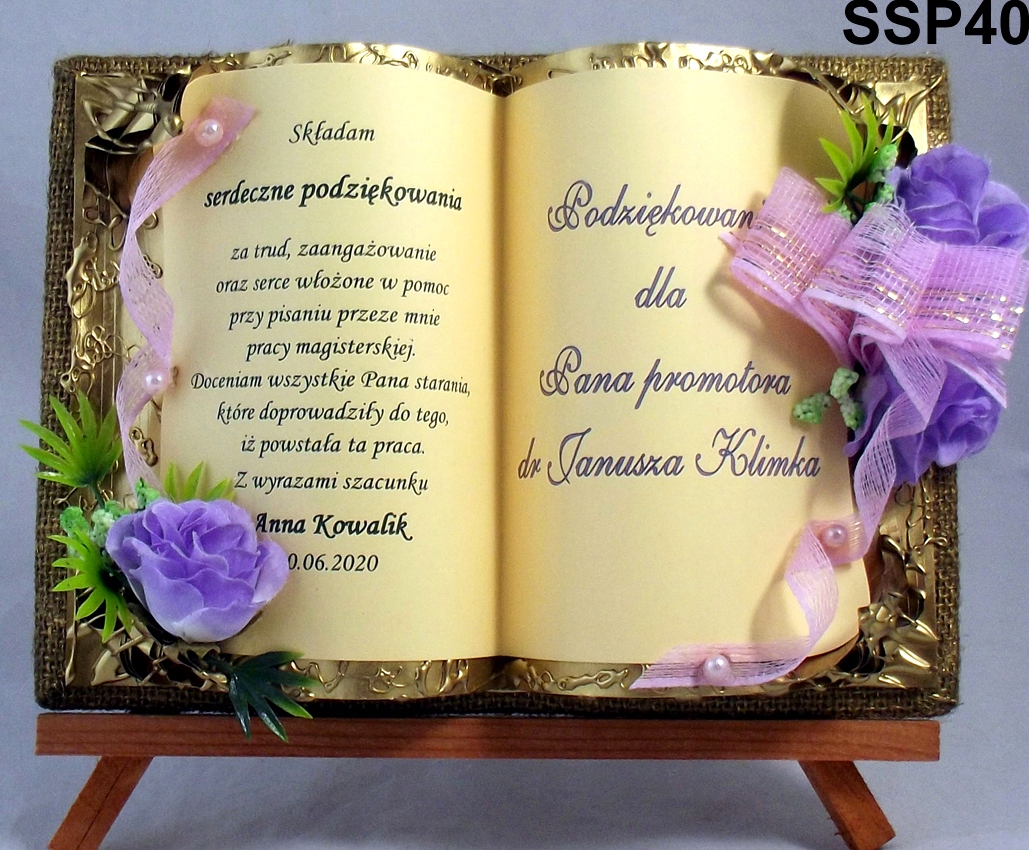 SSP40
Składam
serdeczne podziękowania
za trud, zaangażowanie
oraz serce włożone w pomoc
przy pisaniu przeze mnie
pracy magisterskiej.
Doceniam wszystkie Pana starania,
które doprowadziły do tego,
iż powstała ta praca.
Z wyrazami szacunku
Anna Kowalik
0.06.2020
Podziękowan
dla
Pana promotora
dr Janusza Klimka